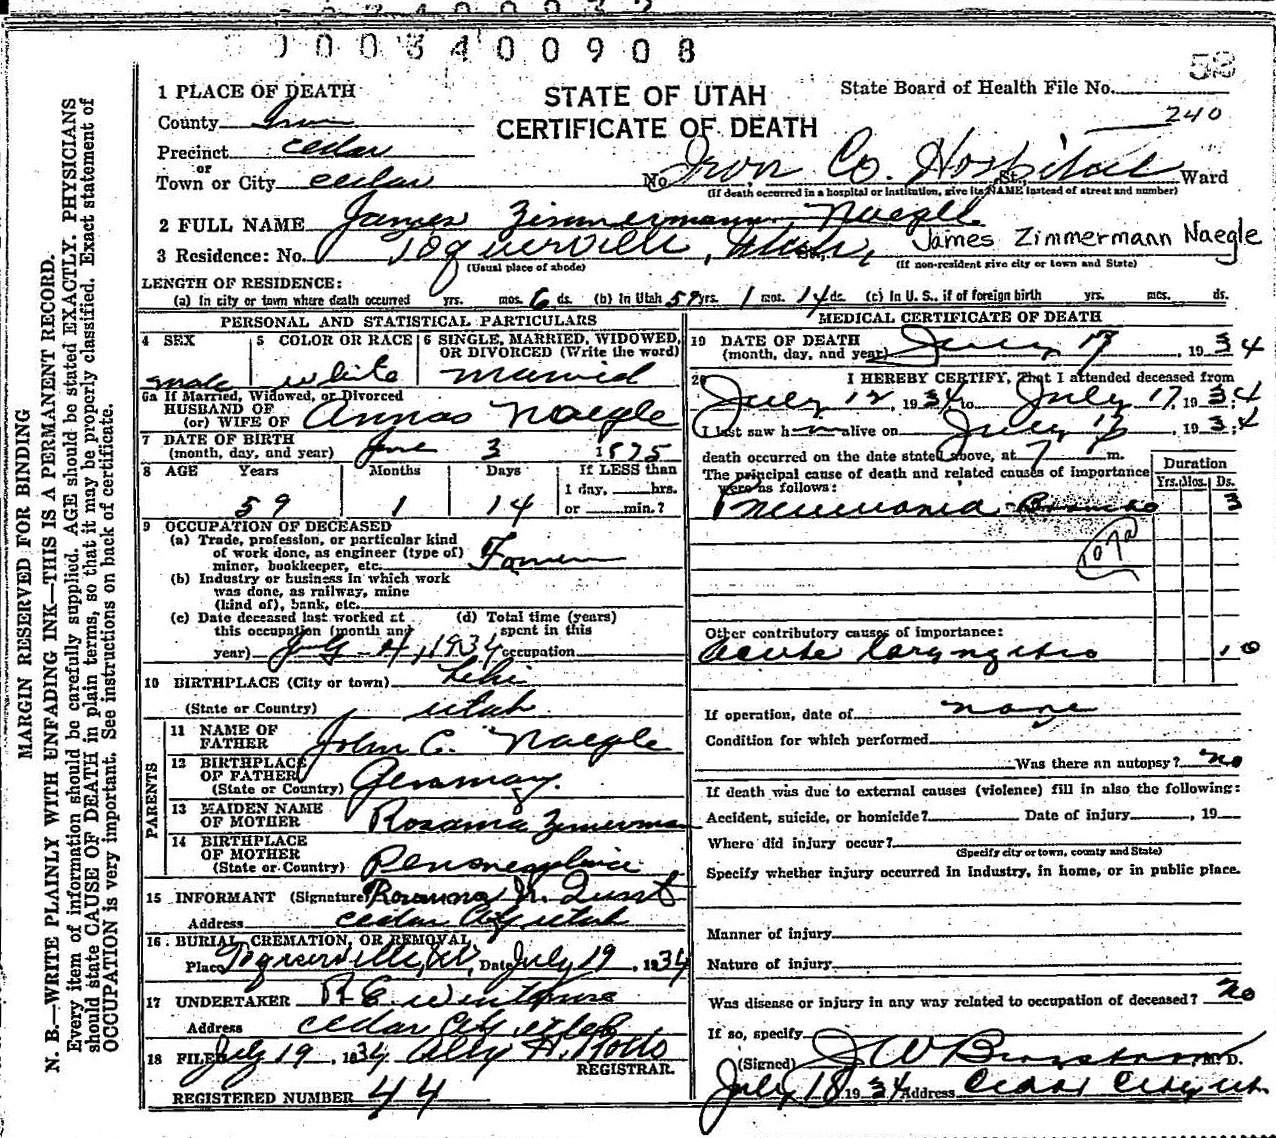 0003400908
53
1 PLACE OF DEATH
STATE OF UTAH
CERTIFICATE OF DEATH
State Board of Health File No.
240
County Iron
Precinct cedar
or
Town or City cedar
No. Iron Co. Hospital St., Ward
(If death occurred in a hospital or institution, give its NAME instead of street and number)
2 FULL NAME James Zimmermann Naegle
James Zimmermann Naegle
3 Residence: No. Toquerville, Utah,
(Usual place of abode)
(If non-resident give city or town and State)
LENGTH OF RESIDENCE:
(a) In city or town where death occurred yrs. mos. 6 ds. (b) In Utah 59 yrs. 1 mos. 14 ds. (c) In U. S., if of foreign birth yrs. mos. ds.
PERSONAL AND STATISTICAL PARTICULARS
4 SEX
male
5 COLOR OR RACE
white
6 SINGLE, MARRIED, WIDOWED,
OR DIVORCED (Write the word)
married
6a If Married, Widowed, or Divorced
HUSBAND OF
(or) WIFE OF Annas Naegle
7 DATE OF BIRTH
(month, day, and year) June 3 1875
8 AGE Years Months Days If LESS than
1 day, hrs.
59 1 14 or min.?
9 OCCUPATION OF DECEASED
(a) Trade, profession, or particular kind
of work done, as engineer (type of)
miner, bookkeeper, etc. Farmer
(b) Industry or business in which work
was done, as railway, mine
(kind of), bank, etc.
(c) Date deceased last worked at
this occupation (month and
year) July - 4, 1934
(d) Total time (years)
spent in this
occupation
10 BIRTHPLACE (City or town) Lehi
(State or Country) utah
PARENTS
11 NAME OF
FATHER John C. Naegle
12 BIRTHPLACE
OF FATHER
(State or Country) Germany.
13 MAIDEN NAME
OF MOTHER Rosanna Zimmerman
14 BIRTHPLACE
OF MOTHER
(State or Country) Pennsylvania
15 INFORMANT (Signature) Rosanna N.
Address cedar City utah
16 BURIAL, CREMATION, OR REMOVAL
Place Toquerville, Ut Date July 19, 1934
17 UNDERTAKER R E
Address cedar City utah
18 FILED July 19, 1934
REGISTRAR.
REGISTERED NUMBER 44
MEDICAL CERTIFICATE OF DEATH
19 DATE OF DEATH
(month, day, and year) July 17, 1934
20 I HEREBY CERTIFY, That I attended deceased from
July 12, 1934, to July 17, 1934
I last saw him alive on July 17, 1934
death occurred on the date stated above, at 7 m.
The principal cause of death and related causes of importance
were as follows:
Duration
Yrs. Mos. Ds.
Pneumonia - Broncho 3
107a
Other contributory causes of importance:
Acute laryngitis 10
If operation, date of none
Condition for which performed
Was there an autopsy? no
If death was due to external causes (violence) fill in also the following:
Accident, suicide, or homicide? Date of injury , 19
Where did injury occur?
(Specify city or town, county and State)
Specify whether injury occurred in industry, in home, or in public place.
Manner of injury
Nature of injury
Was disease or injury in any way related to occupation of deceased? no
If so, specify
(Signed) J W M. D.
July 18 1934 Address Cedar City Ut
MARGIN RESERVED FOR BINDING
N. B.—WRITE PLAINLY WITH UNFADING INK—THIS IS A PERMANENT RECORD.
Every item of information should be carefully supplied. AGE should be stated EXACTLY. PHYSICIANS
should state CAUSE OF DEATH in plain terms, so that it may be properly classified. Exact statement of
OCCUPATION is very important. See instructions on back of certificate.